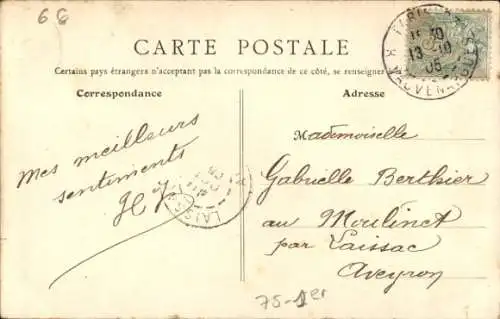 66
CARTE POSTALE
Certains pays étrangers n'acceptant pas la correspondance de ce côté, se renseigner
Correspondance
Adresse
Mes meilleurs
sentiments
Mademoiselle
Gabrielle Berthier
au Moulinet
par Laissac
Aveyron
75-1er
13 - 10
05